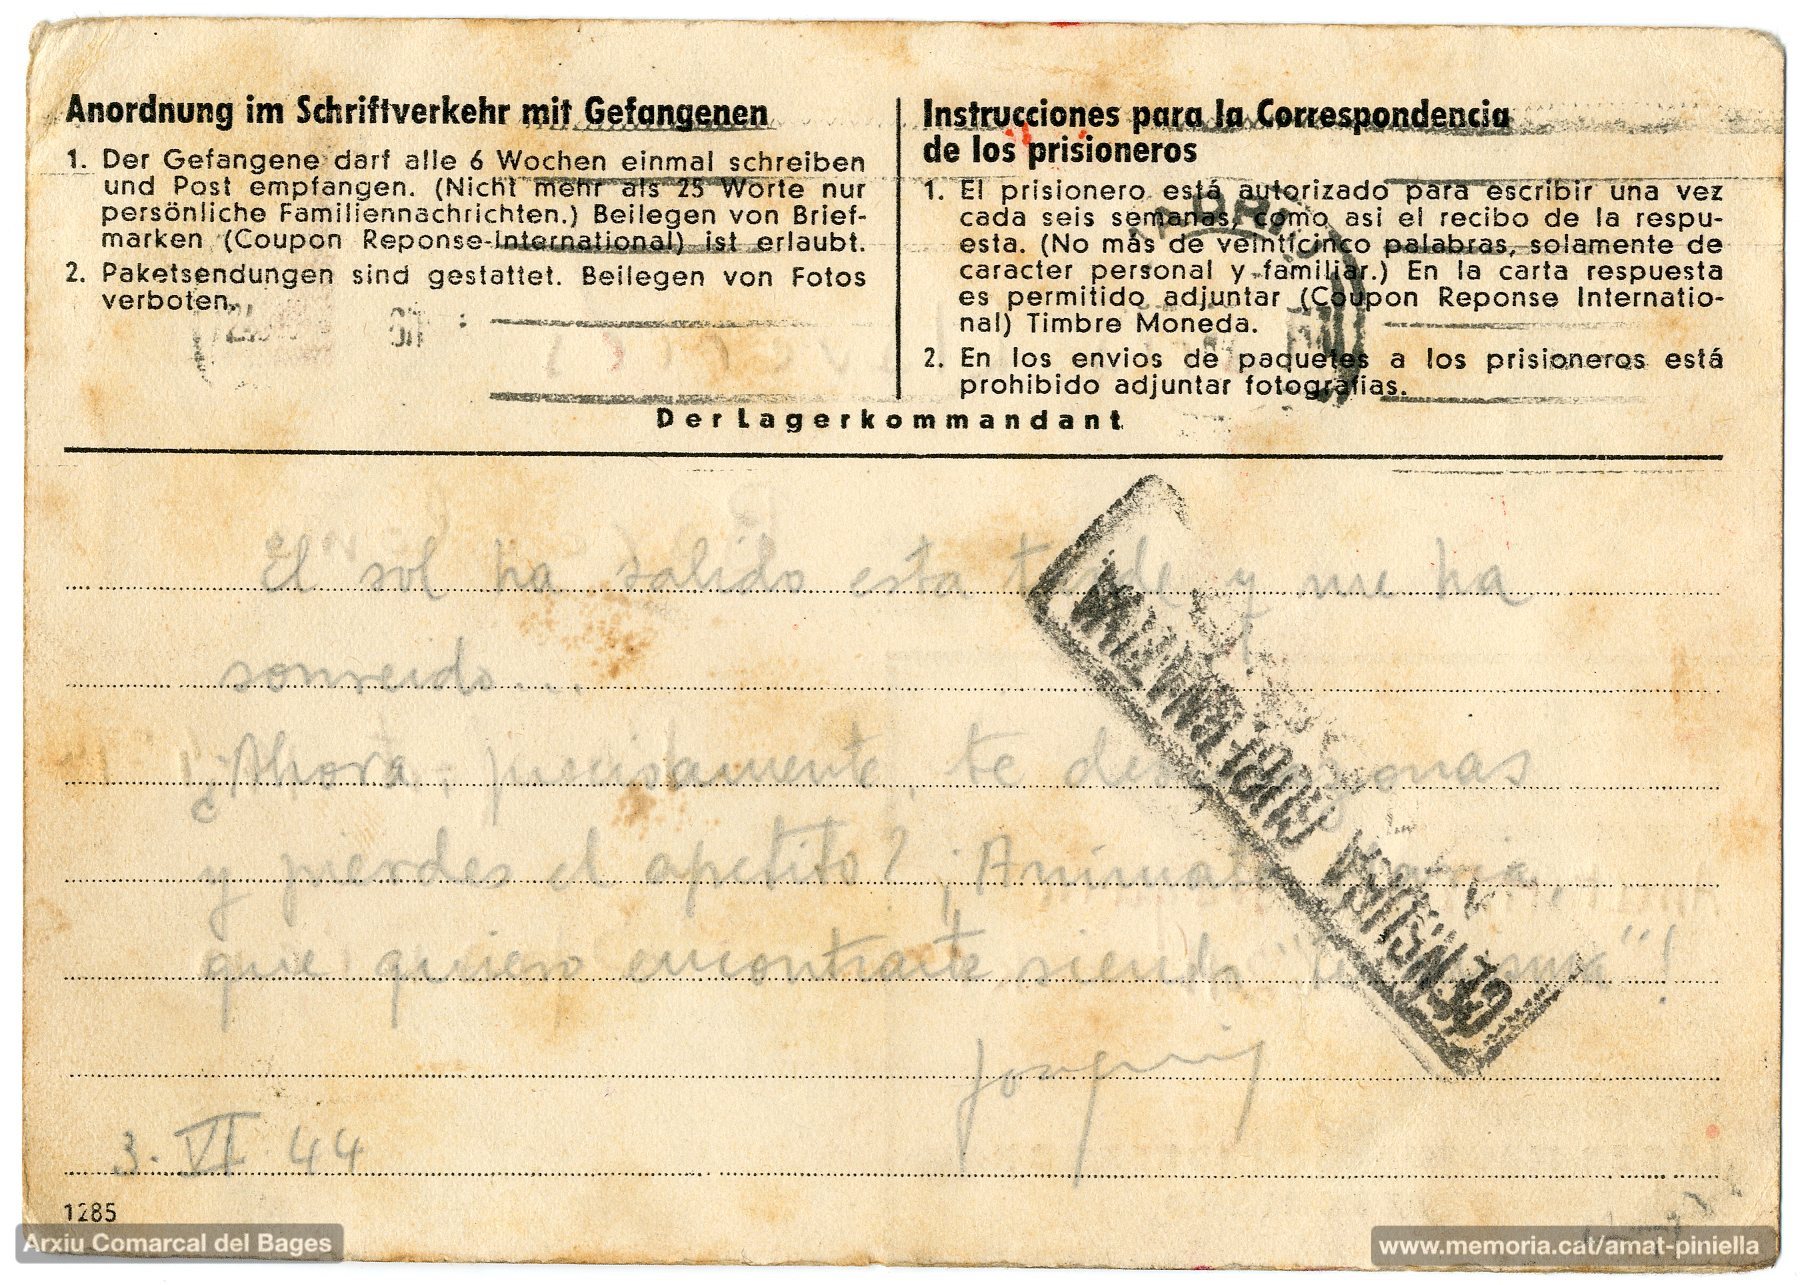 Anordnung im Schriftverkehr mit Gefangenen
1. Der Gefangene darf alle 6 Wochen einmal schreiben
und Post empfangen. (Nicht mehr als 25 Worte nur
persönliche Familiennachrichten.) Beilegen von Brief-
marken (Coupon Reponse-International) ist erlaubt.
2. Paketsendungen sind gestattet. Beilegen von Fotos
verboten.
Instrucciones para la Correspondencia
de los prisioneros
1. El prisionero está autorizado para escribir una vez
cada seis semanas, como asi el recibo de la respu-
esta. (No más de veinticinco palabras, solamente de
caracter personal y familiar.) En la carta respuesta
es permitido adjuntar (Coupon Reponse Internatio-
nal) Timbre Moneda.
2. En los envios de paquetes a los prisioneros está
prohibido adjuntar fotografias.
Der Lagerkommandant
El sol ha salido esta tarde y me ha
sonreido...
¿Ahora, precisamente, te desmoronas
y pierdes el apetito? ¡Animate, Maria,
que quiero encontrarte siendo "tu misma"!
Joaquim
3. VI. 44
CENSURA GUBERNATIVA
1285
Arxiu Comarcal del Bages
www.memoria.cat/amat-piniella